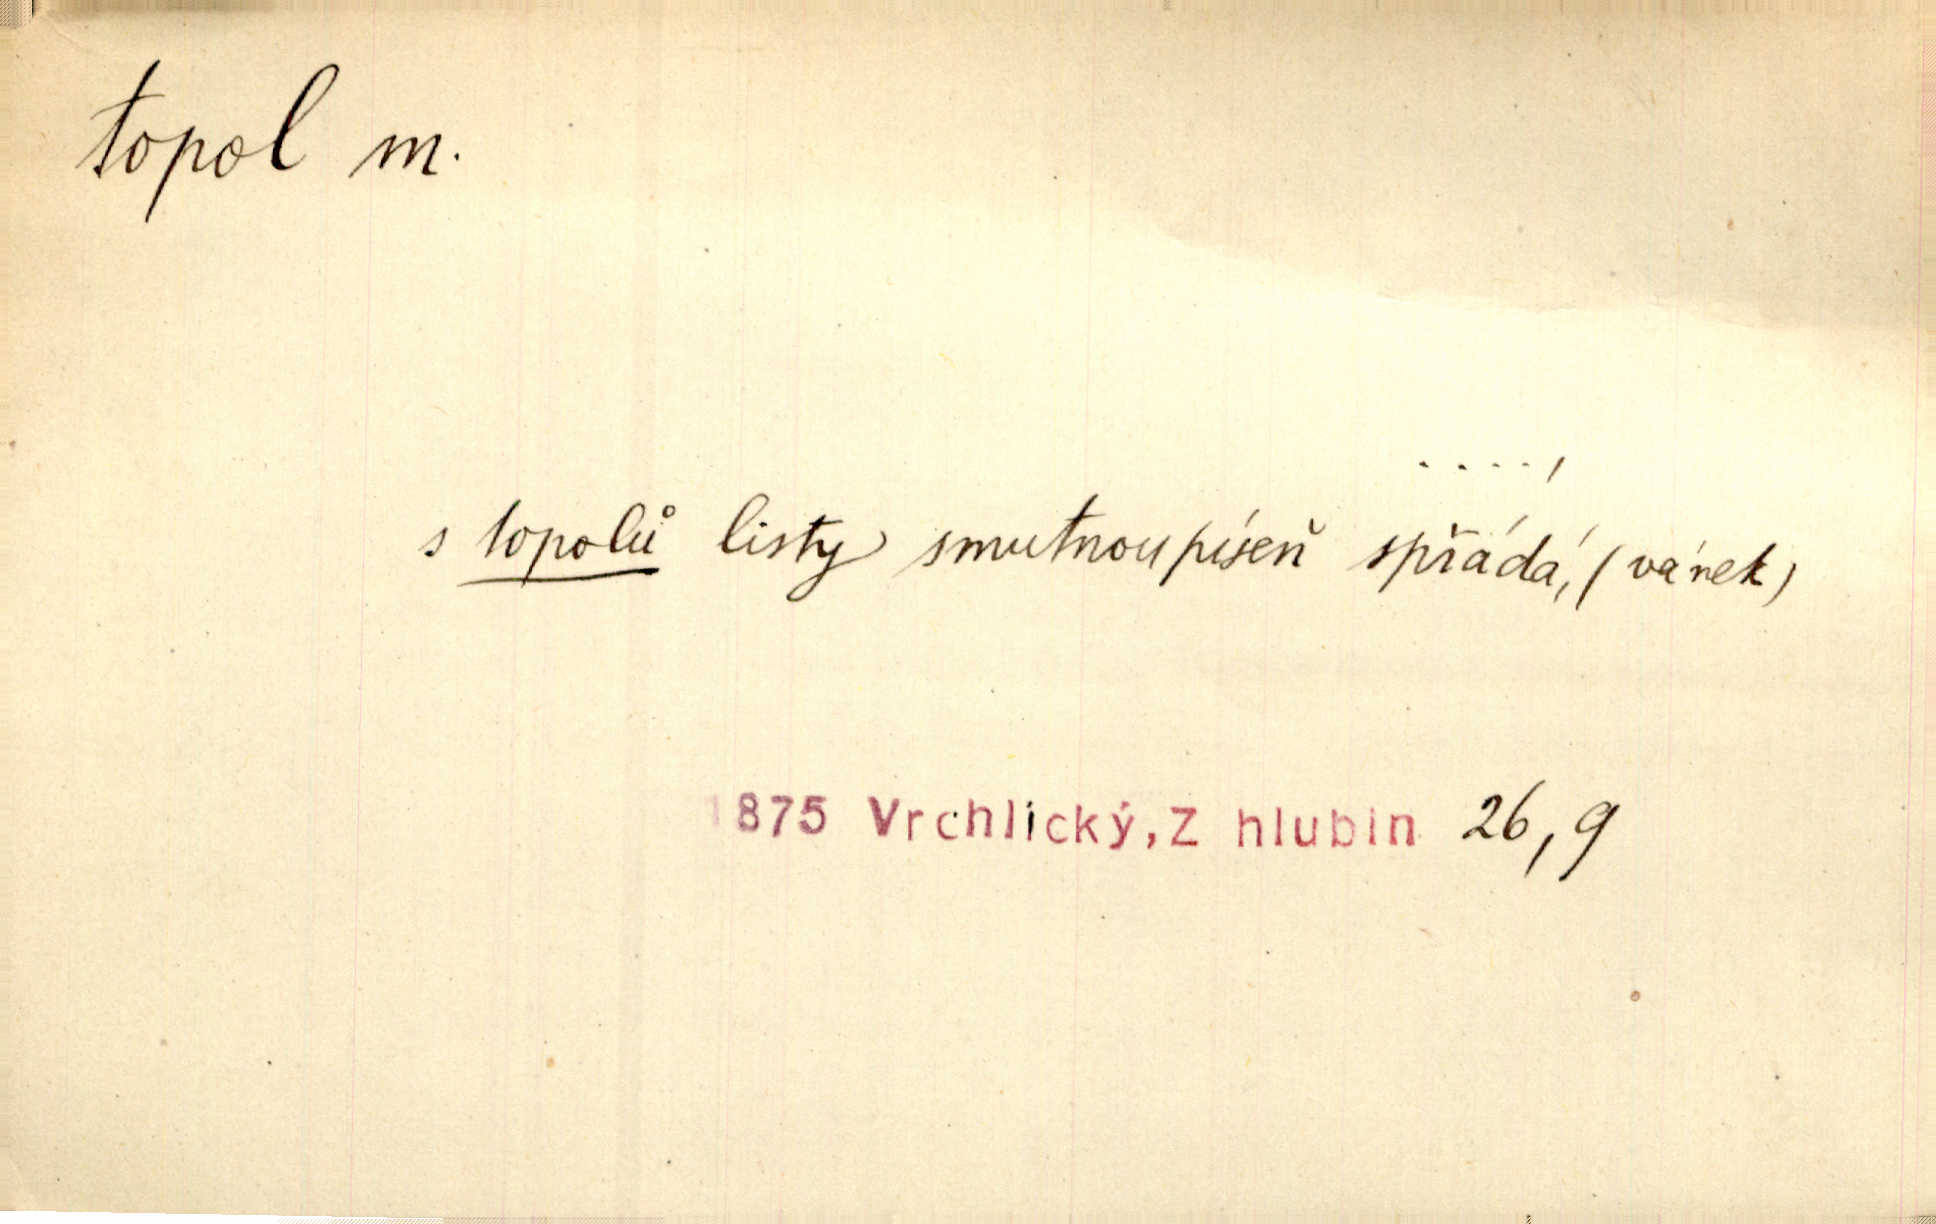 topol m.
. . . . ,
s topolů listy smutnou píseň spřádá, (vánek)
1875 Vrchlický, Z hlubin 26, 9